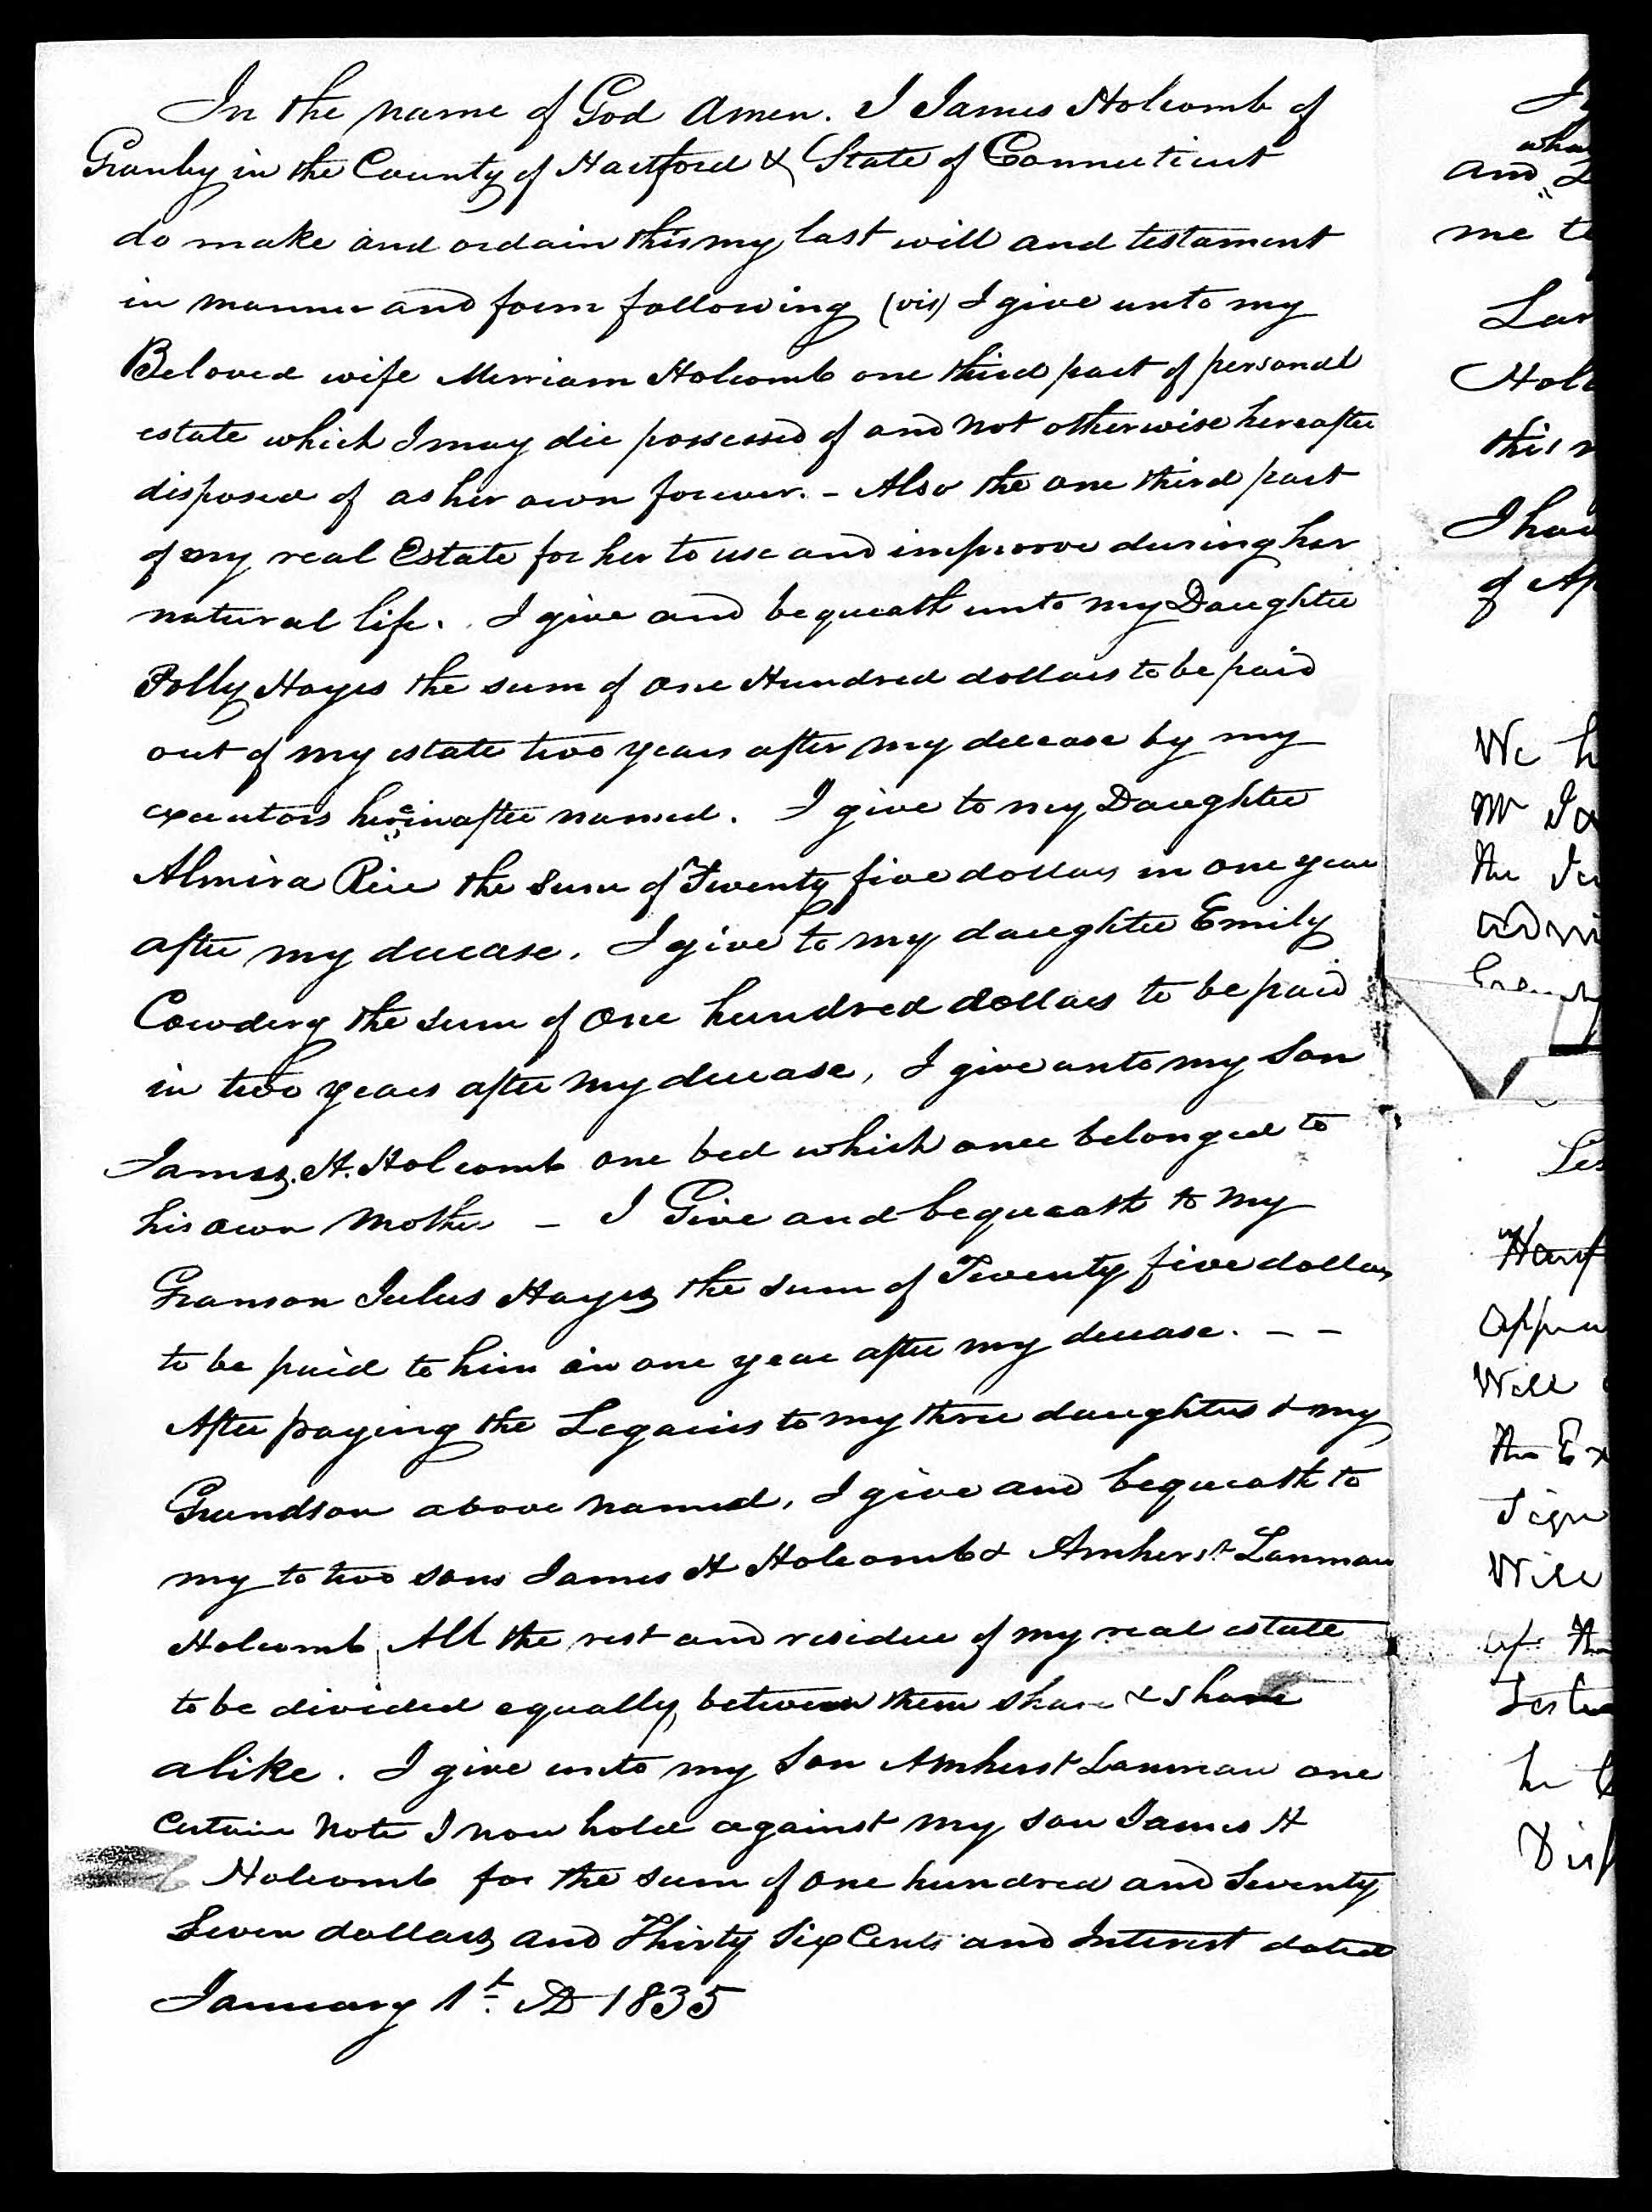 In the name of God Amen. I James Holcomb of
Granby in the County of Hartford & State of Connecticut
do make and ordain this my last will and testament
in manner and form following (vis) I give unto my
Beloved wife Merriam Holcomb one third part of personal
estate which I may die possessed of and not otherwise hereafter
disposed of as her own forever. - Also the one third part
of my real Estate for her to use and improove during her
natural life. I give and bequeath unto my Daughter
Polly Hayes the sum of one Hundred dollars to be paid
out of my estate two years after my decease by my
executors hereinafter named. I give to my Daughter
Almira Rice the sum of Twenty five dollars in one year
after my decease. I give to my daughter Emily
Cowdery the sum of One hundred dollars to be paid
in two years after my decease, I give unto my Son
James. H. Holcomb one bed which once belonged to
his own Mother - I Give and bequeath to my
Granson Julus Hayes the sum of Twenty five dollars
to be paid to him in one year after my decease. - -
After paying the Legacies to my three daughters & my
Grandson above named, I give and bequeath to
my to two sons James H Holcomb & Amherst Lanman
Holcomb All the rest and residue of my real estate
to be divided equally between them share & share
alike. I give unto my Son Amherst Lanman one
Certain Note I now hold against my son James H
Holcomb for the sum of one hundred and Seventy
Seven dollars and Thirty Six Cents and Interest dated
January 1st. AD 1835
and
me
this
We
Mr
the
Will
the
Will